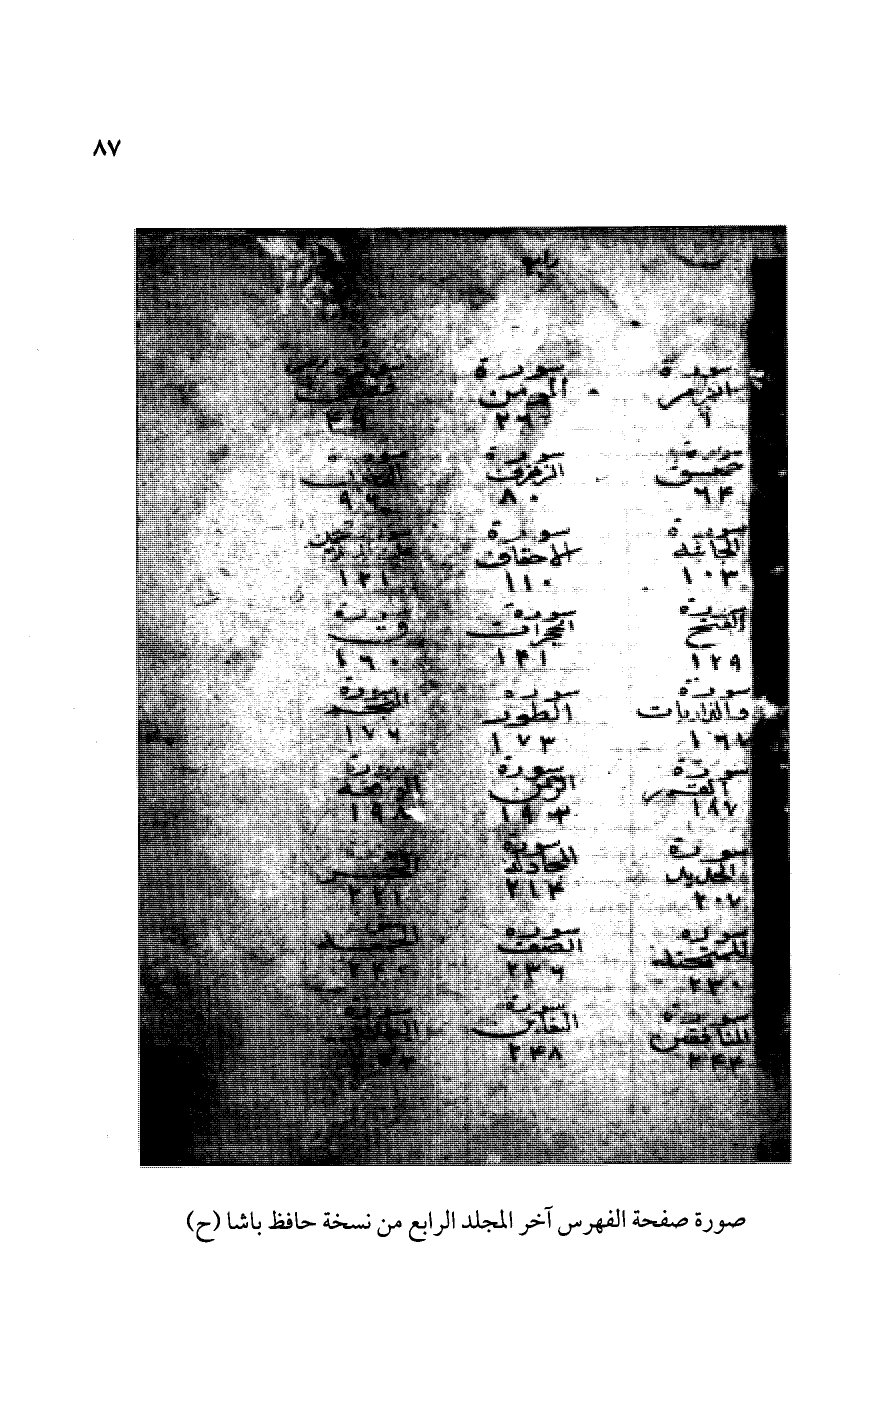 ٨٧
رابع
سورة سورة
الزمر المؤمن
٦
سورة سورة سورة
حمعسق الزخرف الدخان
٦٤ ٨٠ ٩٦
سورة سورة
الجاثيه الاحقاف
١٠٣ ١١٠ ١٢١
سورة سورة سورة
الفتح الحجرات ق
١٢٩ ١٤١ ١٦٠
سورة سورة سورة
والذاريات الطور النجم
١٦٧ ١٧٣ ١٧٦
سورة سورة سورة
القمر الرحمن الواقعة
١٨٧ ١٩٣ ١٩٨
سورة سورة
الحديد المجادلة الحشر
٢٠٧ ٢١٤ ٢٢١
سورة سورة
الممتحنة الصف الجمعة
٢٣٠ ٢٣٦
سورة سورة سورة
المنافقين التغابن الطلاق
٢٤٤ ٢٤٨
صورة صفحة الفهرس آخر المجلد الرابع من نسخة حافظ باشا (ح)